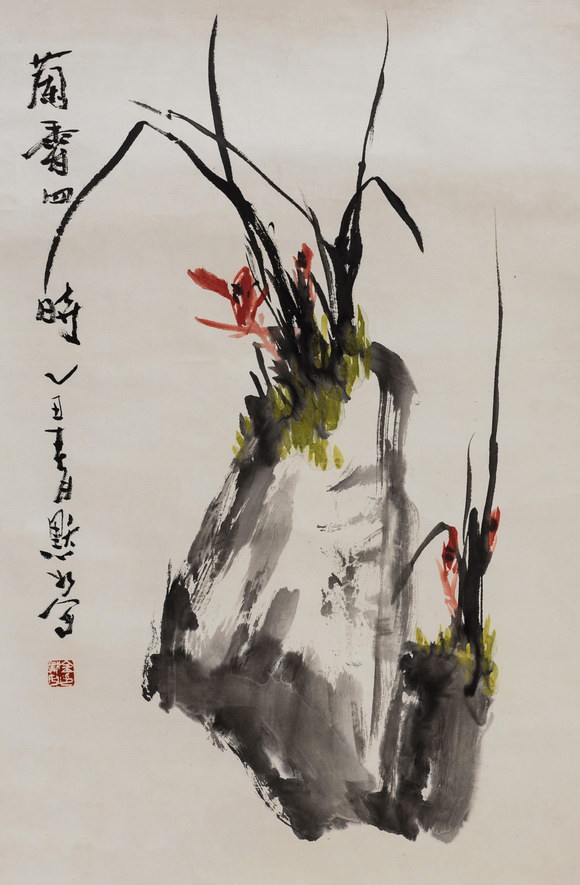 蘭香四時 乙丑春月 默如写